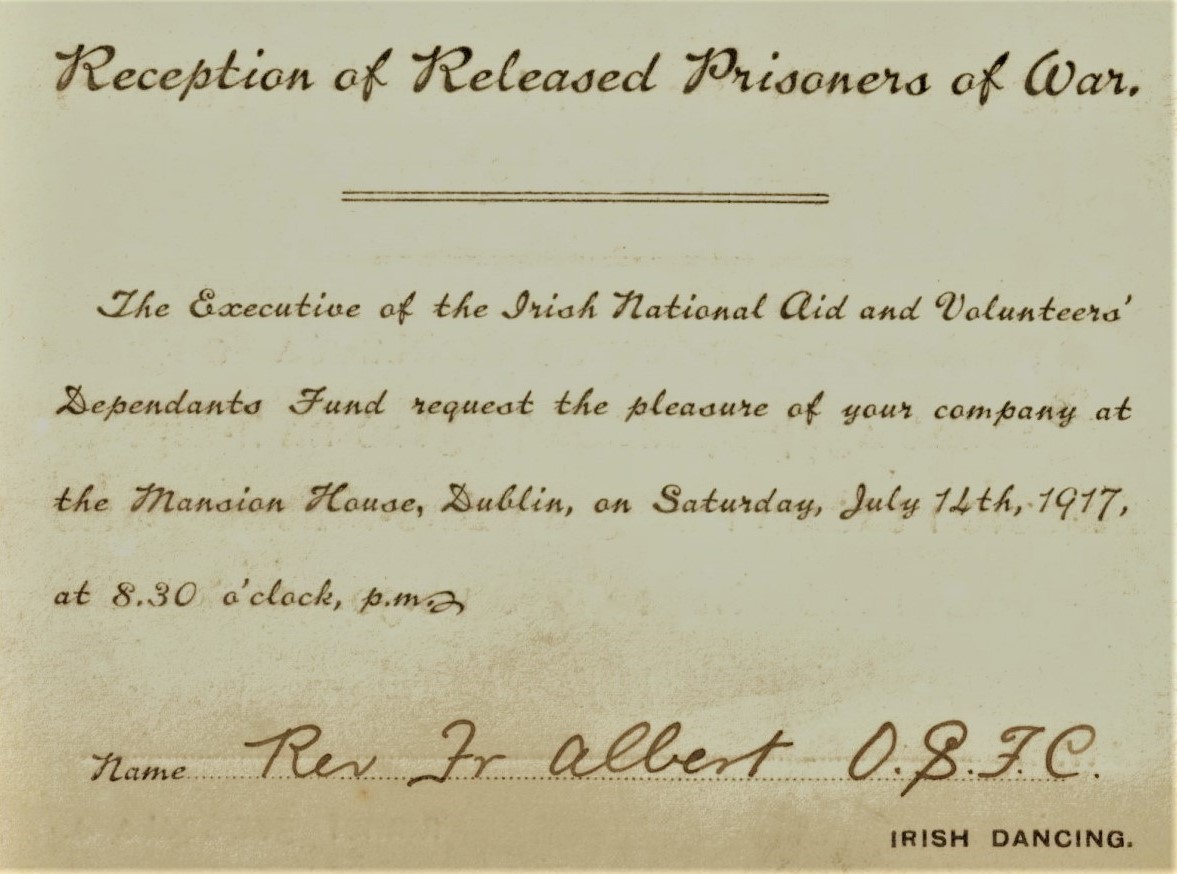 Reception of Released Prisoners of War.
The Executive of the Irish National Aid and Volunteers'
Dependants Fund request the pleasure of your company at
the Mansion House, Dublin, on Saturday, July 14th, 1917,
at 8.30 o'clock, p.m.
Name Rev Fr Albert O.S.F.C.
IRISH DANCING.